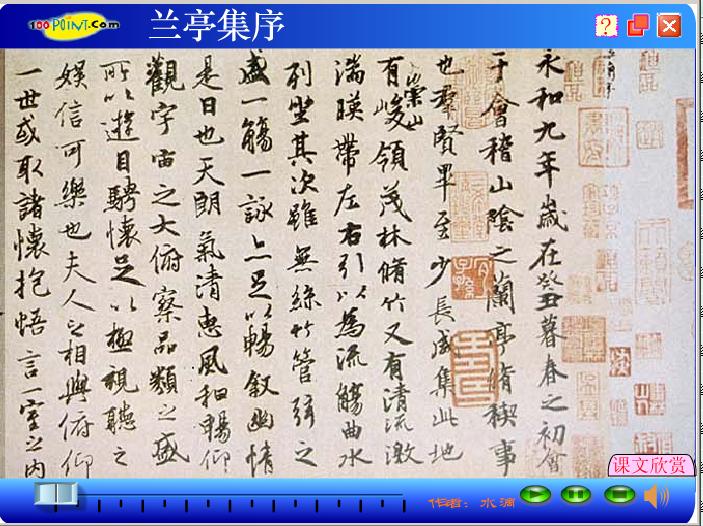 100POINT.com
兰亭集序
?
永和九年歲在癸丑暮春之初會
于會稽山陰之蘭亭脩稧事
也羣賢畢至少長咸集此地
有崇山峻領茂林脩竹又有清流激
湍暎帶左右引以為流觴曲水
列坐其次雖無絲竹管弦之
盛一觴一詠亦足以暢敘幽情
是日也天朗氣清惠風和暢仰
觀宇宙之大俯察品類之盛
所以遊目騁懷足以極視聽之
娛信可樂也夫人之相與俯仰
一世或取諸懷抱悟言一室之內
课文欣赏
作者：水滴